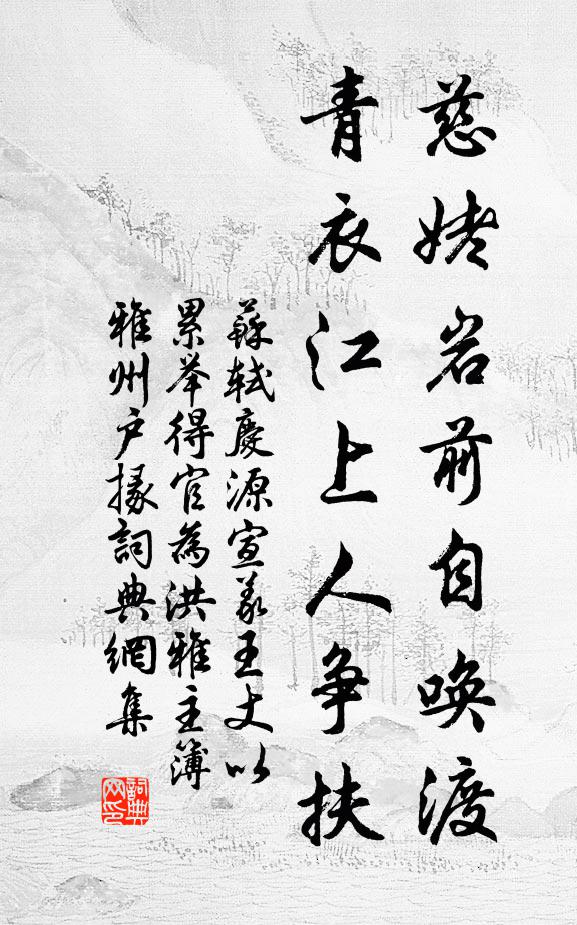 慈姥岩前自唤渡
青衣江上人争扶
蘇軾慶源宣義王丈以
累举得官為洪雅主簿
雅州户掾詞典網集
詞典网印